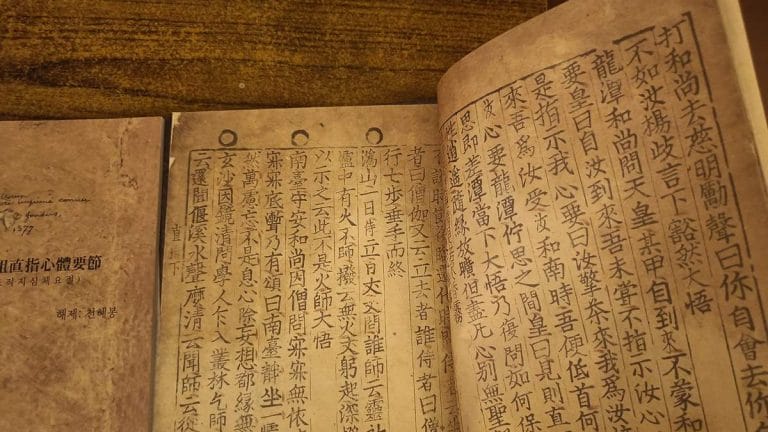 打和尚去慈明勵聲曰你自會去你自
不如汝楊岐言下豁然大悟
龍潭和尚問天皇某甲自到來不蒙和
要皇曰自汝到來吾未嘗不指示汝心
是指示我心要皇曰汝擎茶來我爲汝
來吾爲汝受汝和南時吾便低首何
汝心要龍潭佇思之間皇曰見則直
思即差潭當下大悟乃復問如何保
性逍遙隨緣放曠但盡凡心別無聖
者曰僧伽又云去者誰侍者曰僧
行七步垂手而終
潙山一日侍立百丈丈問誰師云靈
爐中有火不師撥云無火丈躬起深撥
以示之云此不是火師大悟
南臺守安和尚因僧問寂寂無依
寂寂底暫乃有頌曰南臺靜坐一
然萬慮亡不是息心除妄想都緣無
玄沙因鏡清問學人乍入叢林乞師
云還聞偃溪水聲麽清云聞師云從
直指下
1377
直指心體要節
직지심체요절)
해제: 천혜봉